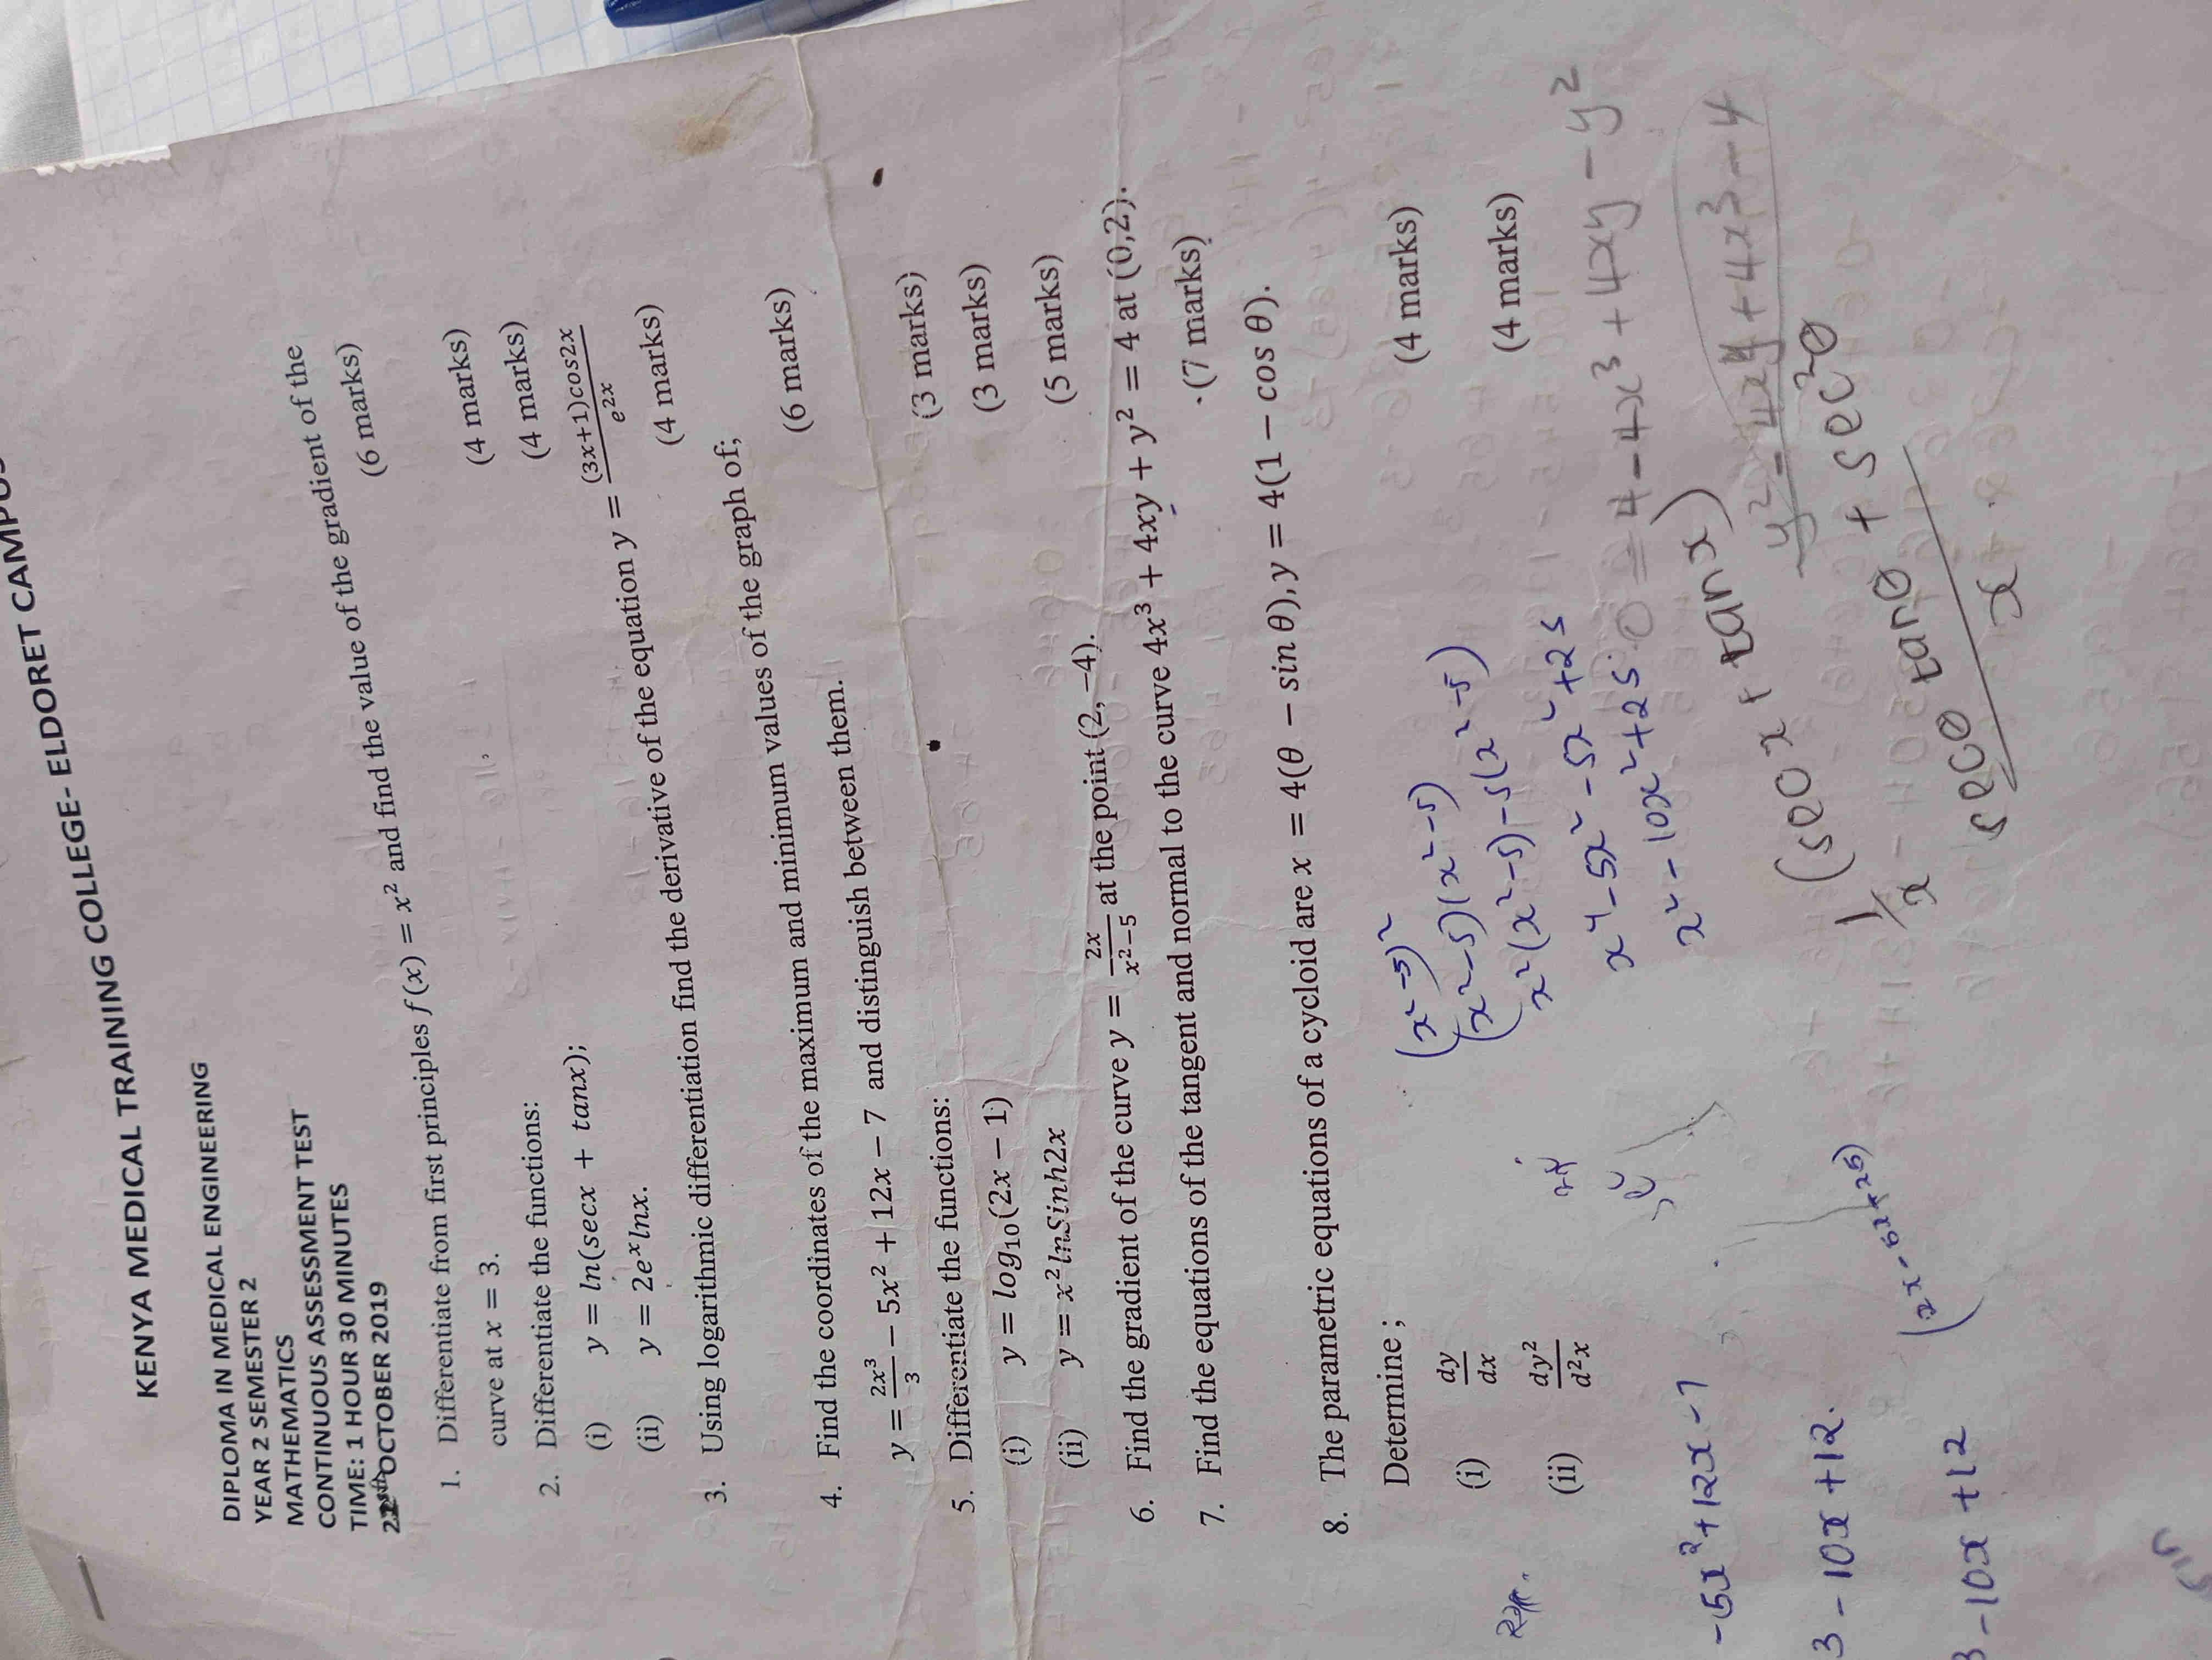 KENYA MEDICAL TRAINING COLLEGE- ELDORET CAMPUS
DIPLOMA IN MEDICAL ENGINEERING
YEAR 2 SEMESTER 2
MATHEMATICS
CONTINUOUS ASSESSMENT TEST
TIME: 1 HOUR 30 MINUTES
OCTOBER 2019
1. Differentiate from first principles f(x) = x² and find the value of the gradient of the
curve at x = 3. (6 marks)
2. Differentiate the functions:
(i) y = ln(secx + tanx); (4 marks)
(ii) y = 2eˣlnx. (4 marks)
3. Using logarithmic differentiation find the derivative of the equation y = (3x+1)cos2x / e²ˣ
(4 marks)
4. Find the coordinates of the maximum and minimum values of the graph of;
y = 2x³/3 − 5x² + 12x − 7 and distinguish between them. (6 marks)
5. Differentiate the functions:
(i) y = log₁₀(2x − 1) (3 marks)
(ii) y = x²lnSinh2x (3 marks)
6. Find the gradient of the curve y = 2x / x²−5 at the point (2, −4). (5 marks)
7. Find the equations of the tangent and normal to the curve 4x³ + 4xy + y² = 4 at (0,2).
(7 marks)
8. The parametric equations of a cycloid are x = 4(θ − sin θ), y = 4(1 − cos θ).
Determine ;
(i) dy/dx (4 marks)
(ii) dy²/d²x (4 marks)
(x²-5)²
(x²-5)(x²-5)
x²(x²-5)-5(x²-5)
x⁴-5x²-5x²+25
x⁴-10x²+25
0 = 4-4x³+4xy-y²
y²=4xy+4x³-4
1/x (secx + tanx)
secθ tanθ + sec²θ
secθ
x
-5x²+12x-7
3-10x+12.
3-10x+12